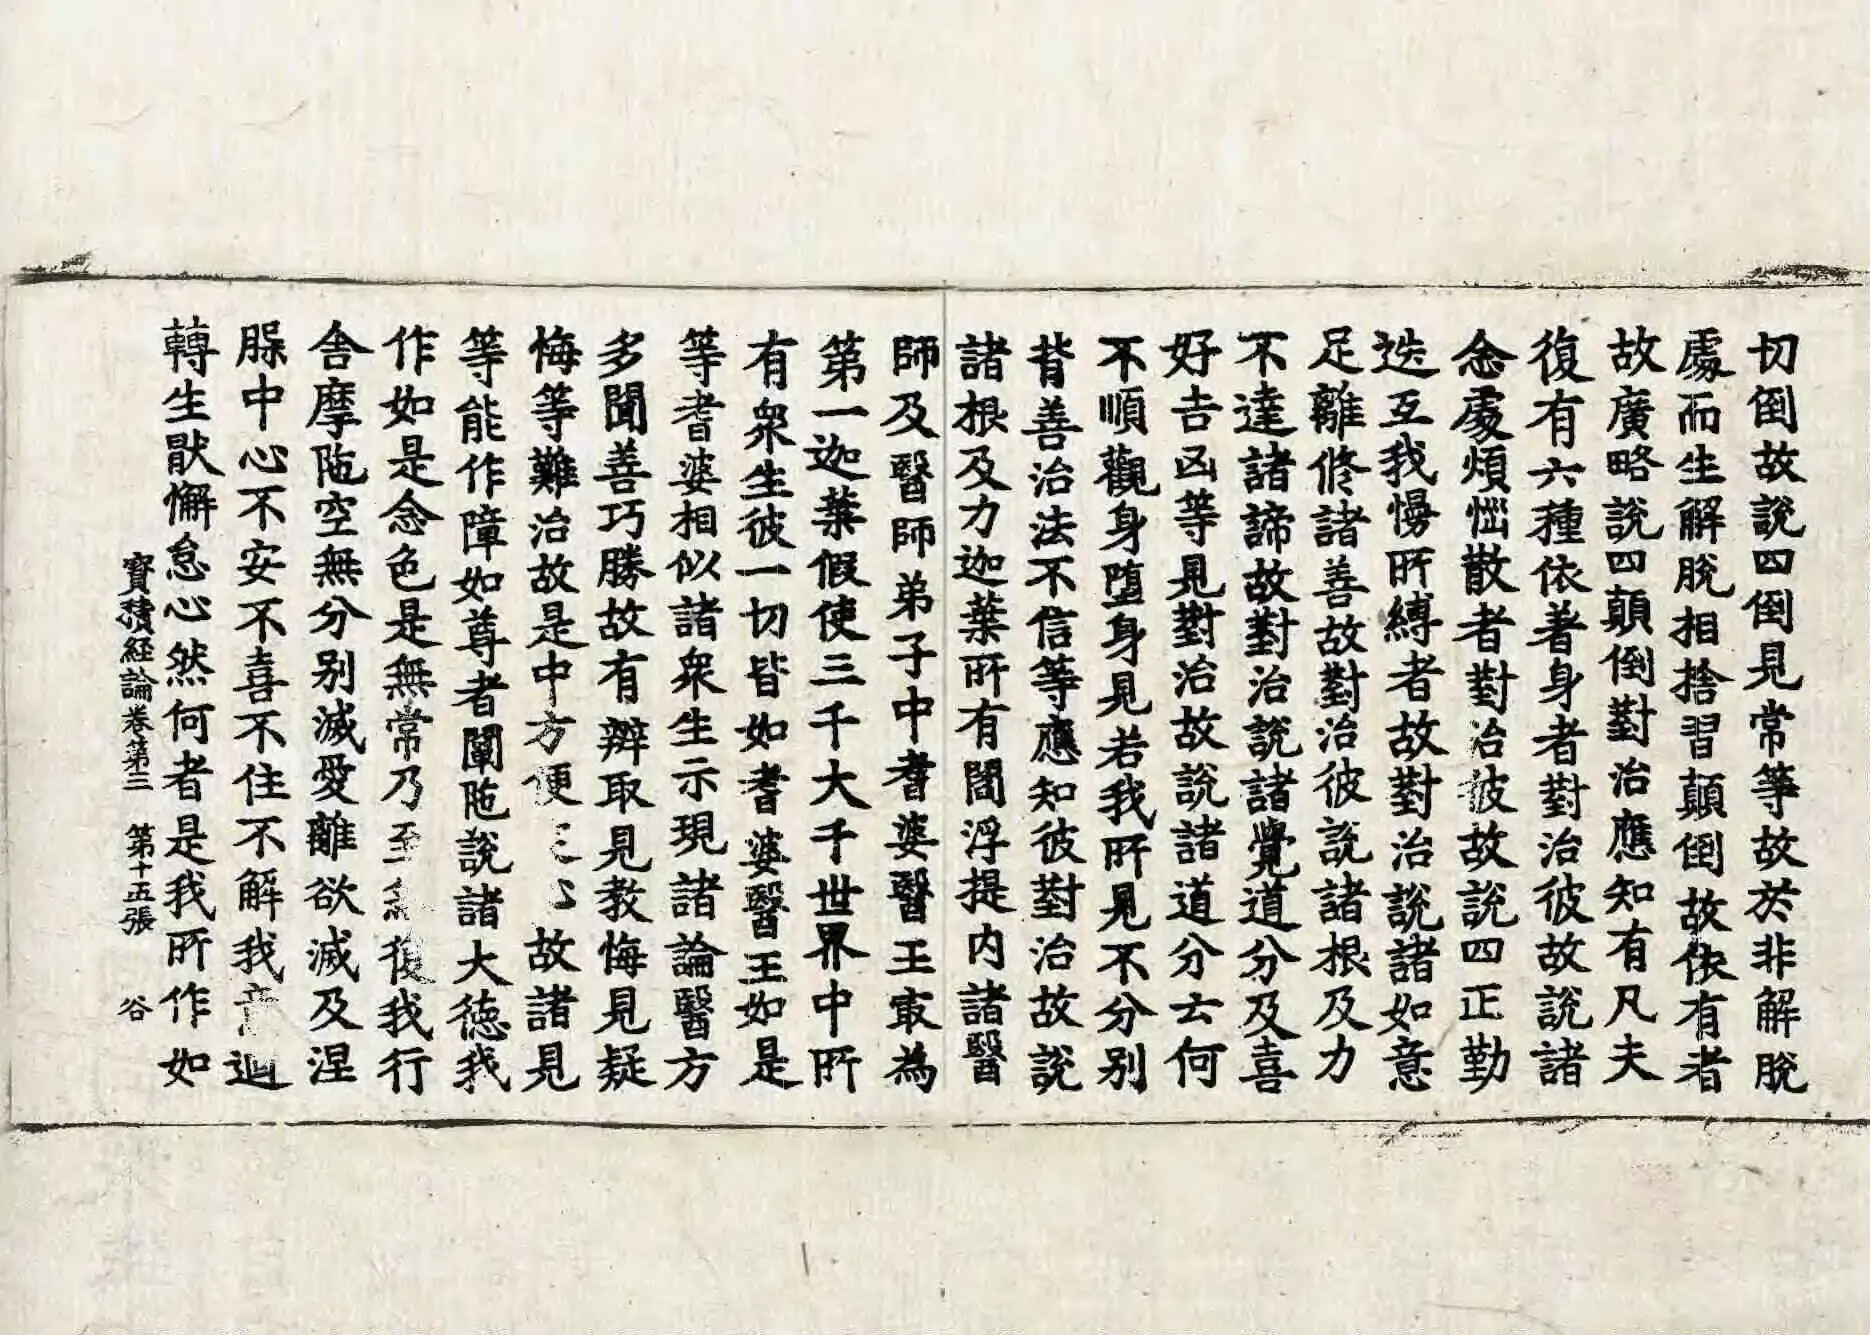 切倒故說四倒見常等故於非解脫
處而生解脫相捨習顛倒故依有者
故廣略說四顛倒對治應知有凡夫
復有六種依著身者對治彼故說諸
念處煩惱散者對治彼故說四正勤
迭互我慢所縛者故對治說諸如意
足離修諸善故對治彼說諸根及力
不達諸諦故對治說諸覺道分及喜
好吉凶等見對治故說諸道分云何
不順觀身墮身見若我所見不分別
背善治法不信等應知彼對治故說
諸根及力迦葉所有閻浮提內諸醫
師及醫師弟子中耆婆醫王㝡為
第一迦葉假使三千大千世界中所
有衆生彼一切皆如耆婆醫王如是
等耆婆相似諸衆生示現諸論醫方
多聞善巧勝故有辯取見教悔見疑
悔等難治故是中方便 故諸見
等能作障如尊者闡陁說諸大德我
作如是念色是無常乃至 復我行
舍摩陁空無分別滅愛離欲滅及涅
脲中心不安不喜不住不解我 迴
轉生猒懈怠心然何者是我所作如
寶積經論卷第三 第十五張 谷